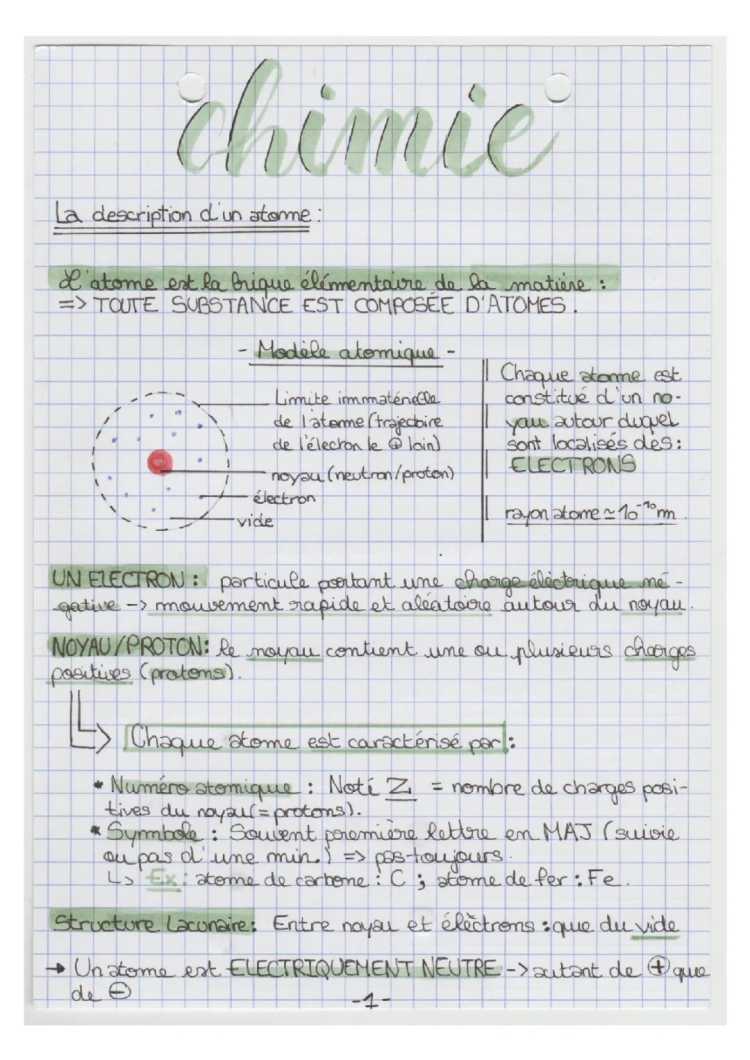 chimie
La description d'un atome :
L'atome est la brique élémentaire de la matière :
=> TOUTE SUBSTANCE EST COMPOSÉE D'ATOMES.
- Modèle atomique -
Limite immatérielle
de l'atome (trajectoire
de l'électron le ⊕ loin)
noyau (neutron/proton)
électron
vide
Chaque atome est
constitué d'un no-
yau autour duquel
sont localisés des :
ELECTRONS
rayon atome ≃ 10⁻¹⁰ m
UN ELECTRON : particule portant une charge électrique né-
gative -> mouvement rapide et aléatoire autour du noyau.
NOYAU/PROTON: le noyau contient une ou plusieurs charges
positives (protons).
Chaque atome est caractérisé par :
* Numéro atomique : Noté Z = nombre de charges posi-
tives du noyau (= protons).
* Symbole : Souvent première lettre en MAJ (suivie
ou pas d'une min.) => pas toujours.
↳ Ex : atome de carbone : C ; atome de fer : Fe.
Structure Lacunaire : Entre noyau et élèctrons : que du vide
→ Un atome est ELECTRIQUEMENT NEUTRE -> autant de ⊕ que
de ⊖
-1-